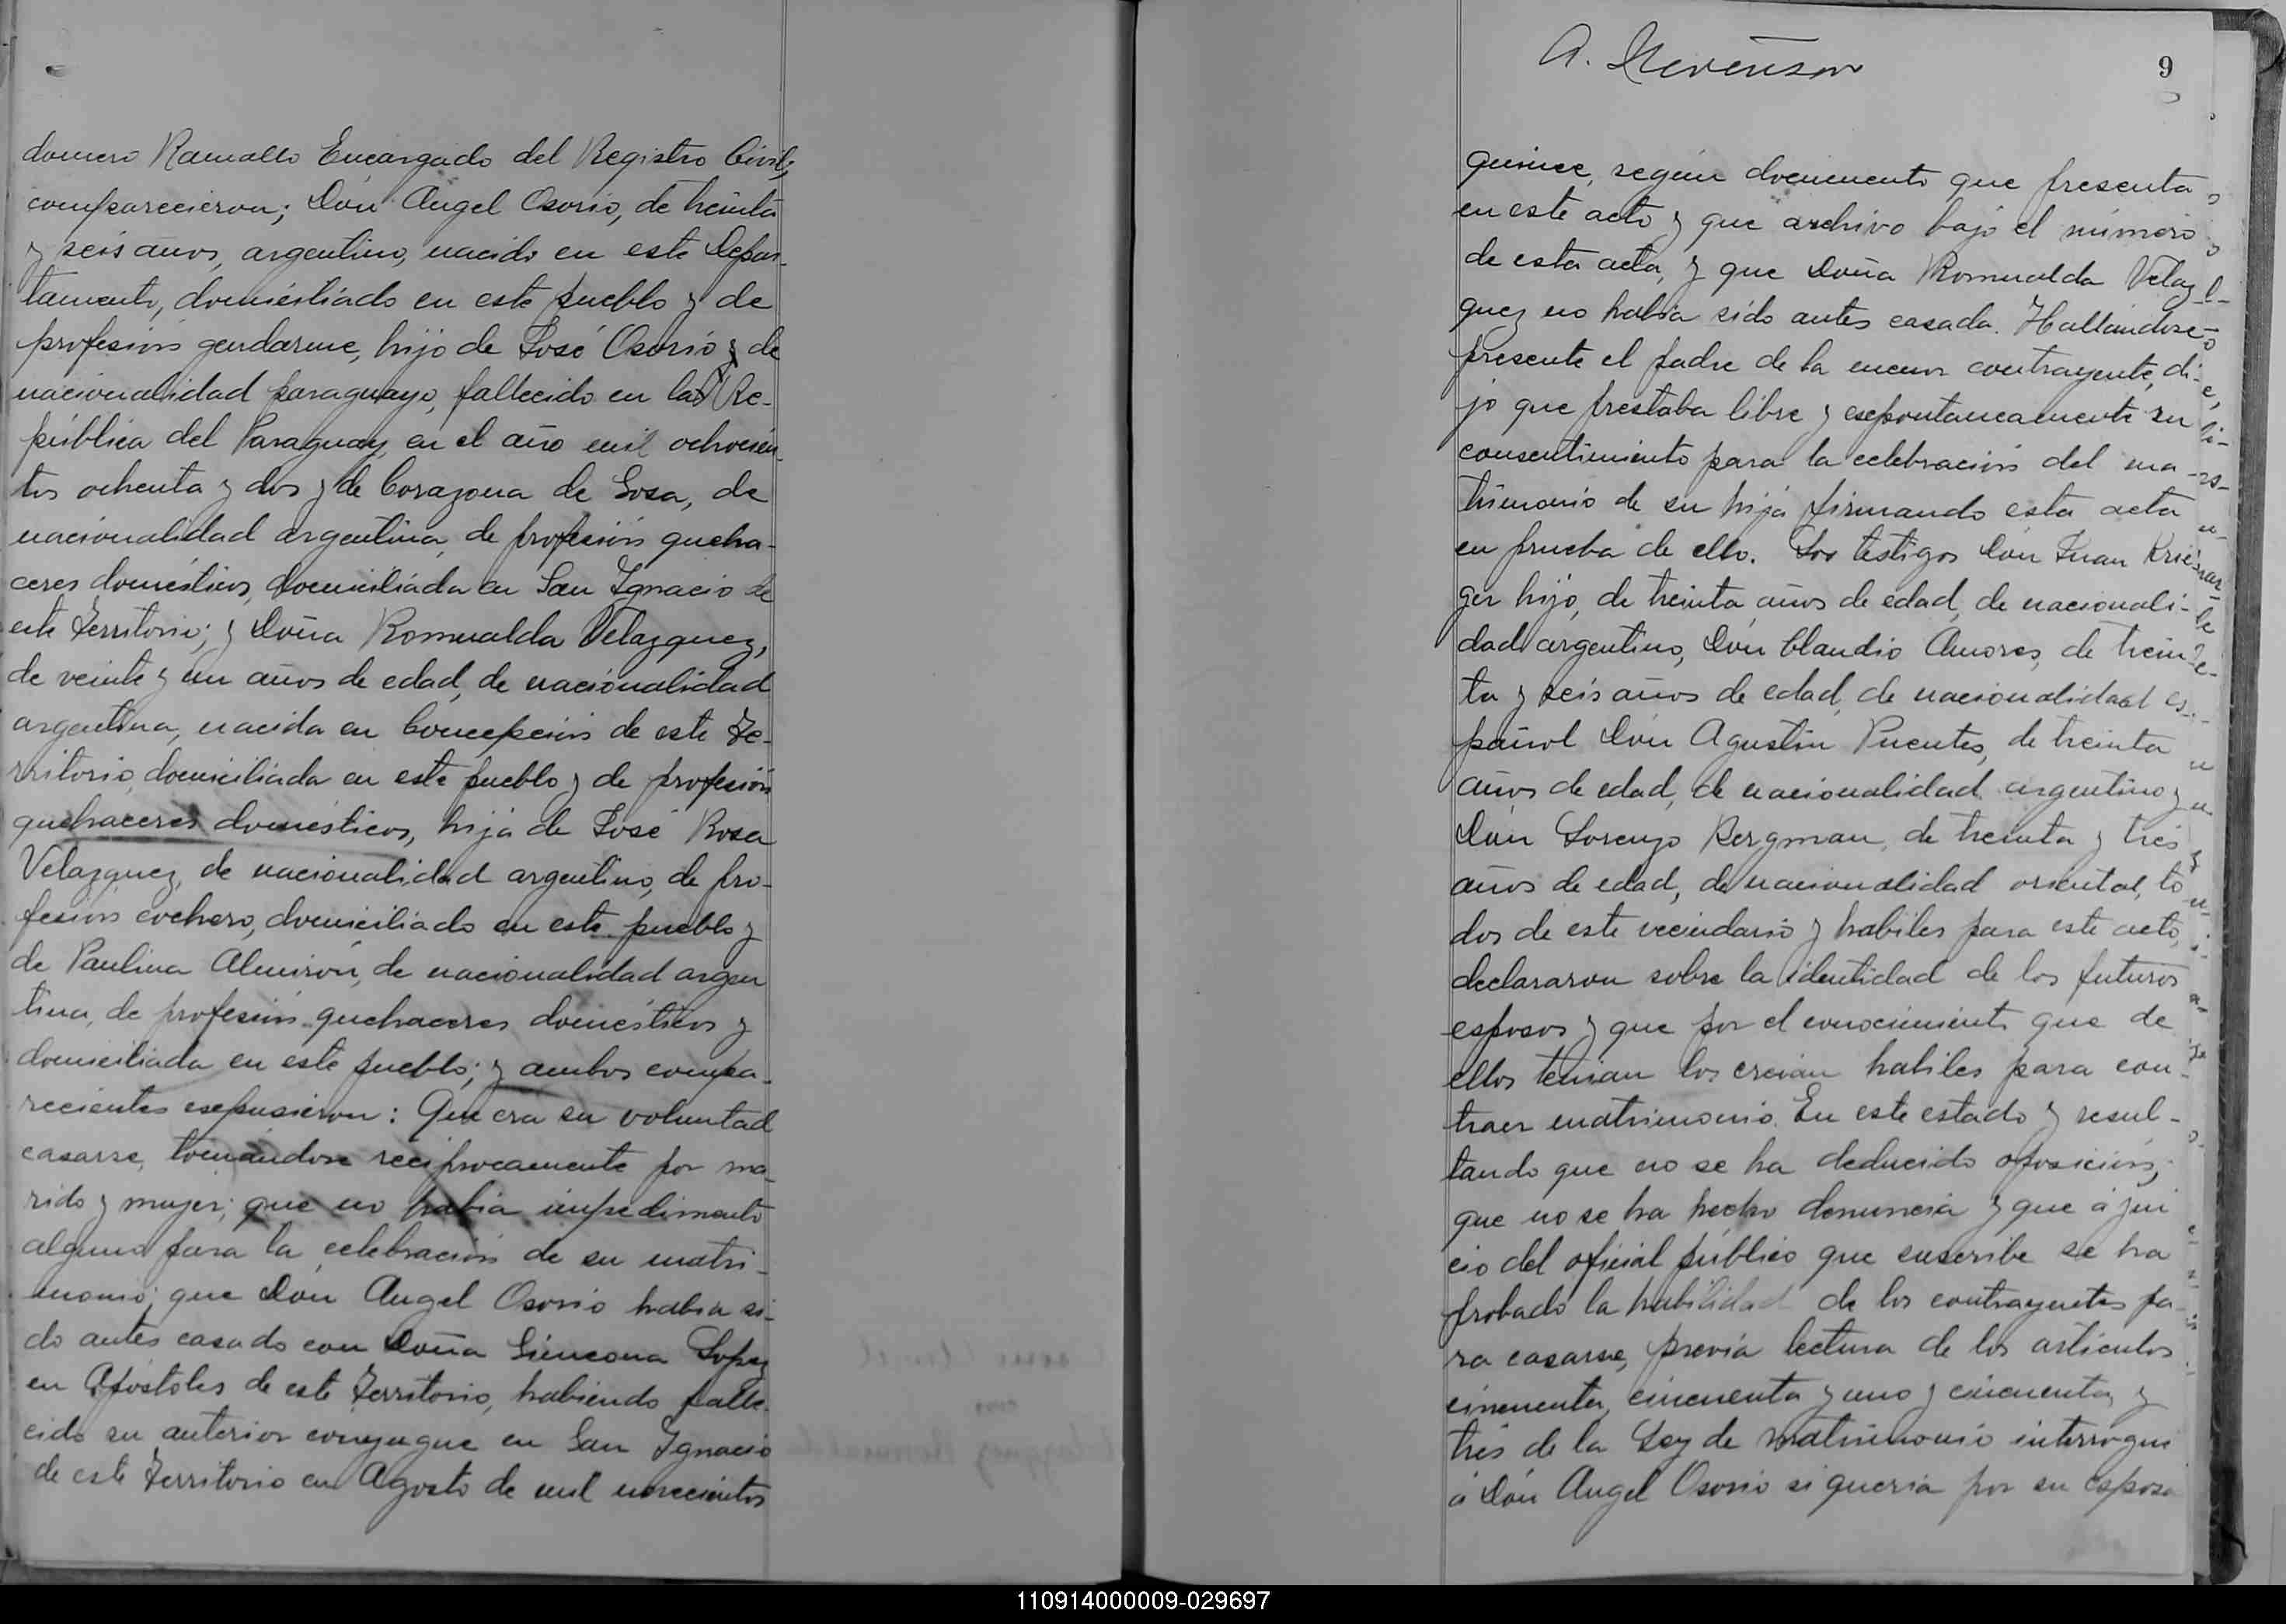 domero Ramallo Encargado del Registro Civil,
comparecieron; Don Angel Osorio, de treinta
y seis años, argentino, nacido en este Depar-
tamento, domiciliado en este pueblo y de
profesión gendarme, hijo de José Osorio, de
nacionalidad paraguayo, fallecido en la Re-
pública del Paraguay, en el año mil ochocien-
tos ochenta y dos y de Corazona de Sosa, de
nacionalidad argentina, de profesión queha-
ceres domésticos, domiciliada en San Ignacio de
este Territorio; y Doña Romualda Velazquez,
de veinte y un años de edad, de nacionalidad
argentina, nacida en Concepción de este Te-
rritorio, domiciliada en este pueblo y de profesión
quehaceres domésticos, hija de José Rosa
Velazquez, de nacionalidad argentino, de pro-
fesión cochero, domiciliado en este pueblo y
de Paulina Almirón, de nacionalidad argen
tina, de profesión quehaceres domésticos y
domiciliada en este pueblo; y ambos compa-
recientes espusieron: Que era su voluntad
casarse, tomándose recíprocamente por ma-
rido y mujer; que no habia impedimento
alguno para la celebración de su matri-
monio; que Don Angel Osorio habia si-
do antes casado con Doña Lopez
en Apóstoles de este Territorio, habiendo falle-
cido su anterior conyugue en San Ignacio
de este Territorio en Agosto de mil novecientos
A. Stevenson
9
quince, según documento que presenta
en este acto y que archivo bajo el número
de esta acta, y que Doña Romualda Velaz
quez no habia sido antes casada. Hallándose
presente el padre de la menor contrayente, di-
jo que prestaba libre y espontaneamente su
consentimiento para la celebración del ma-
trimonio de su hija firmando esta acta
en prueba de ello. Los testigos Don Juan Krie
ger hijo, de treinta años de edad, de nacionali-
dad argentino, Don Claudio Amores, de trein
ta y seis años de edad, de nacionalidad es-
pañol Don Agustin Puentes, de treinta
años de edad, de nacionalidad argentino y
Don Lorenzo Bergman, de treinta y tres
años de edad, de nacionalidad oriental, to
dos de este vecindario y habiles para este acto,
declararon sobre la identidad de los futuros
esposos y que por el conocimiento que de
ellos tenian los creian habiles para con-
traer matrimonio. En este estado y resul-
tando que no se ha deducido oposición,
que no se ha hecho denuncia y que á jui
cio del oficial público que suscribe se ha
probado la habilidad de los contrayentes pa-
ra casarse, previa lectura de los artículos
cincuenta, cincuenta y uno y cincuenta y
tres de la Ley de matrimonio interrogué
á Don Angel Osorio si queria por su esposa
110914000009-029697